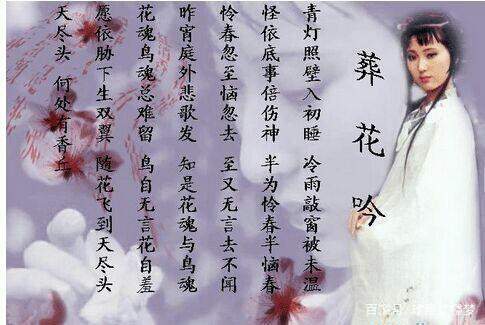 葬花吟
青灯照壁人初睡 冷雨敲窗被未温
怪侬底事倍伤神 半为怜春半恼春
怜春忽至恼忽去 至又无言去不闻
昨宵庭外悲歌发 知是花魂与鸟魂
花魂鸟魂总难留 鸟自无言花自羞
愿侬胁下生双翼 随花飞到天尽头
天尽头 何处有香丘